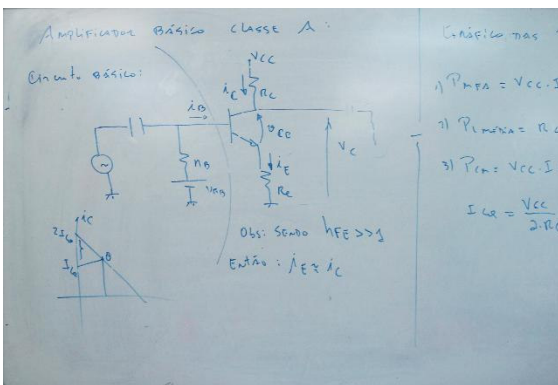 AMPLIFICADOR BÁSICO CLASSE A:
Circuito básico:
VCC
RC
iC
iB
VCC
VC
RB
VBB
iE
RE
iC
2ICQ
ICQ
Q
Obs: SENDO hFE >> 1
Então: iE ≈ iC
GRÁFICO DAS
1) PMÉDIA = VCC . I
2) PL MÉDIA = RC
3) PCM = VCC . I
ICQ = VCC
2.RC